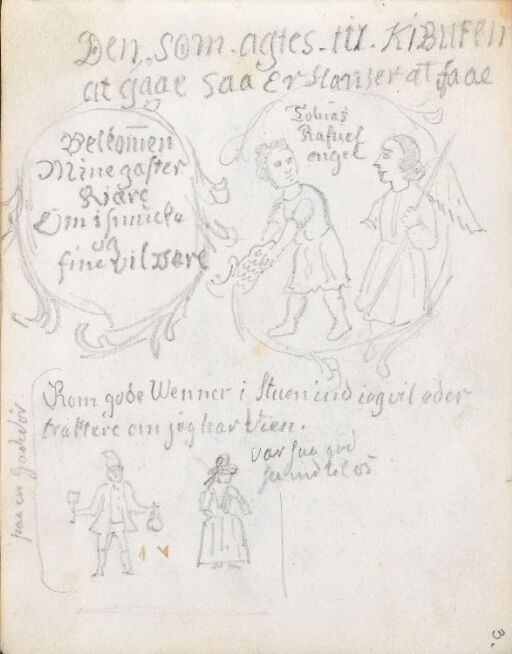 Den. som. agtes. til. KiBUfen
at gaae saa Er Hanser at faae
Velkomen
Mine gaster
Kiære
Om i smucke
og
fine vil være
Tobias
Rafuel
engel
Kom gode Wenner i Stuen ind ieg vil eder
traktere om jeg har Vien.
var saa god
paa en Gadedør
3.